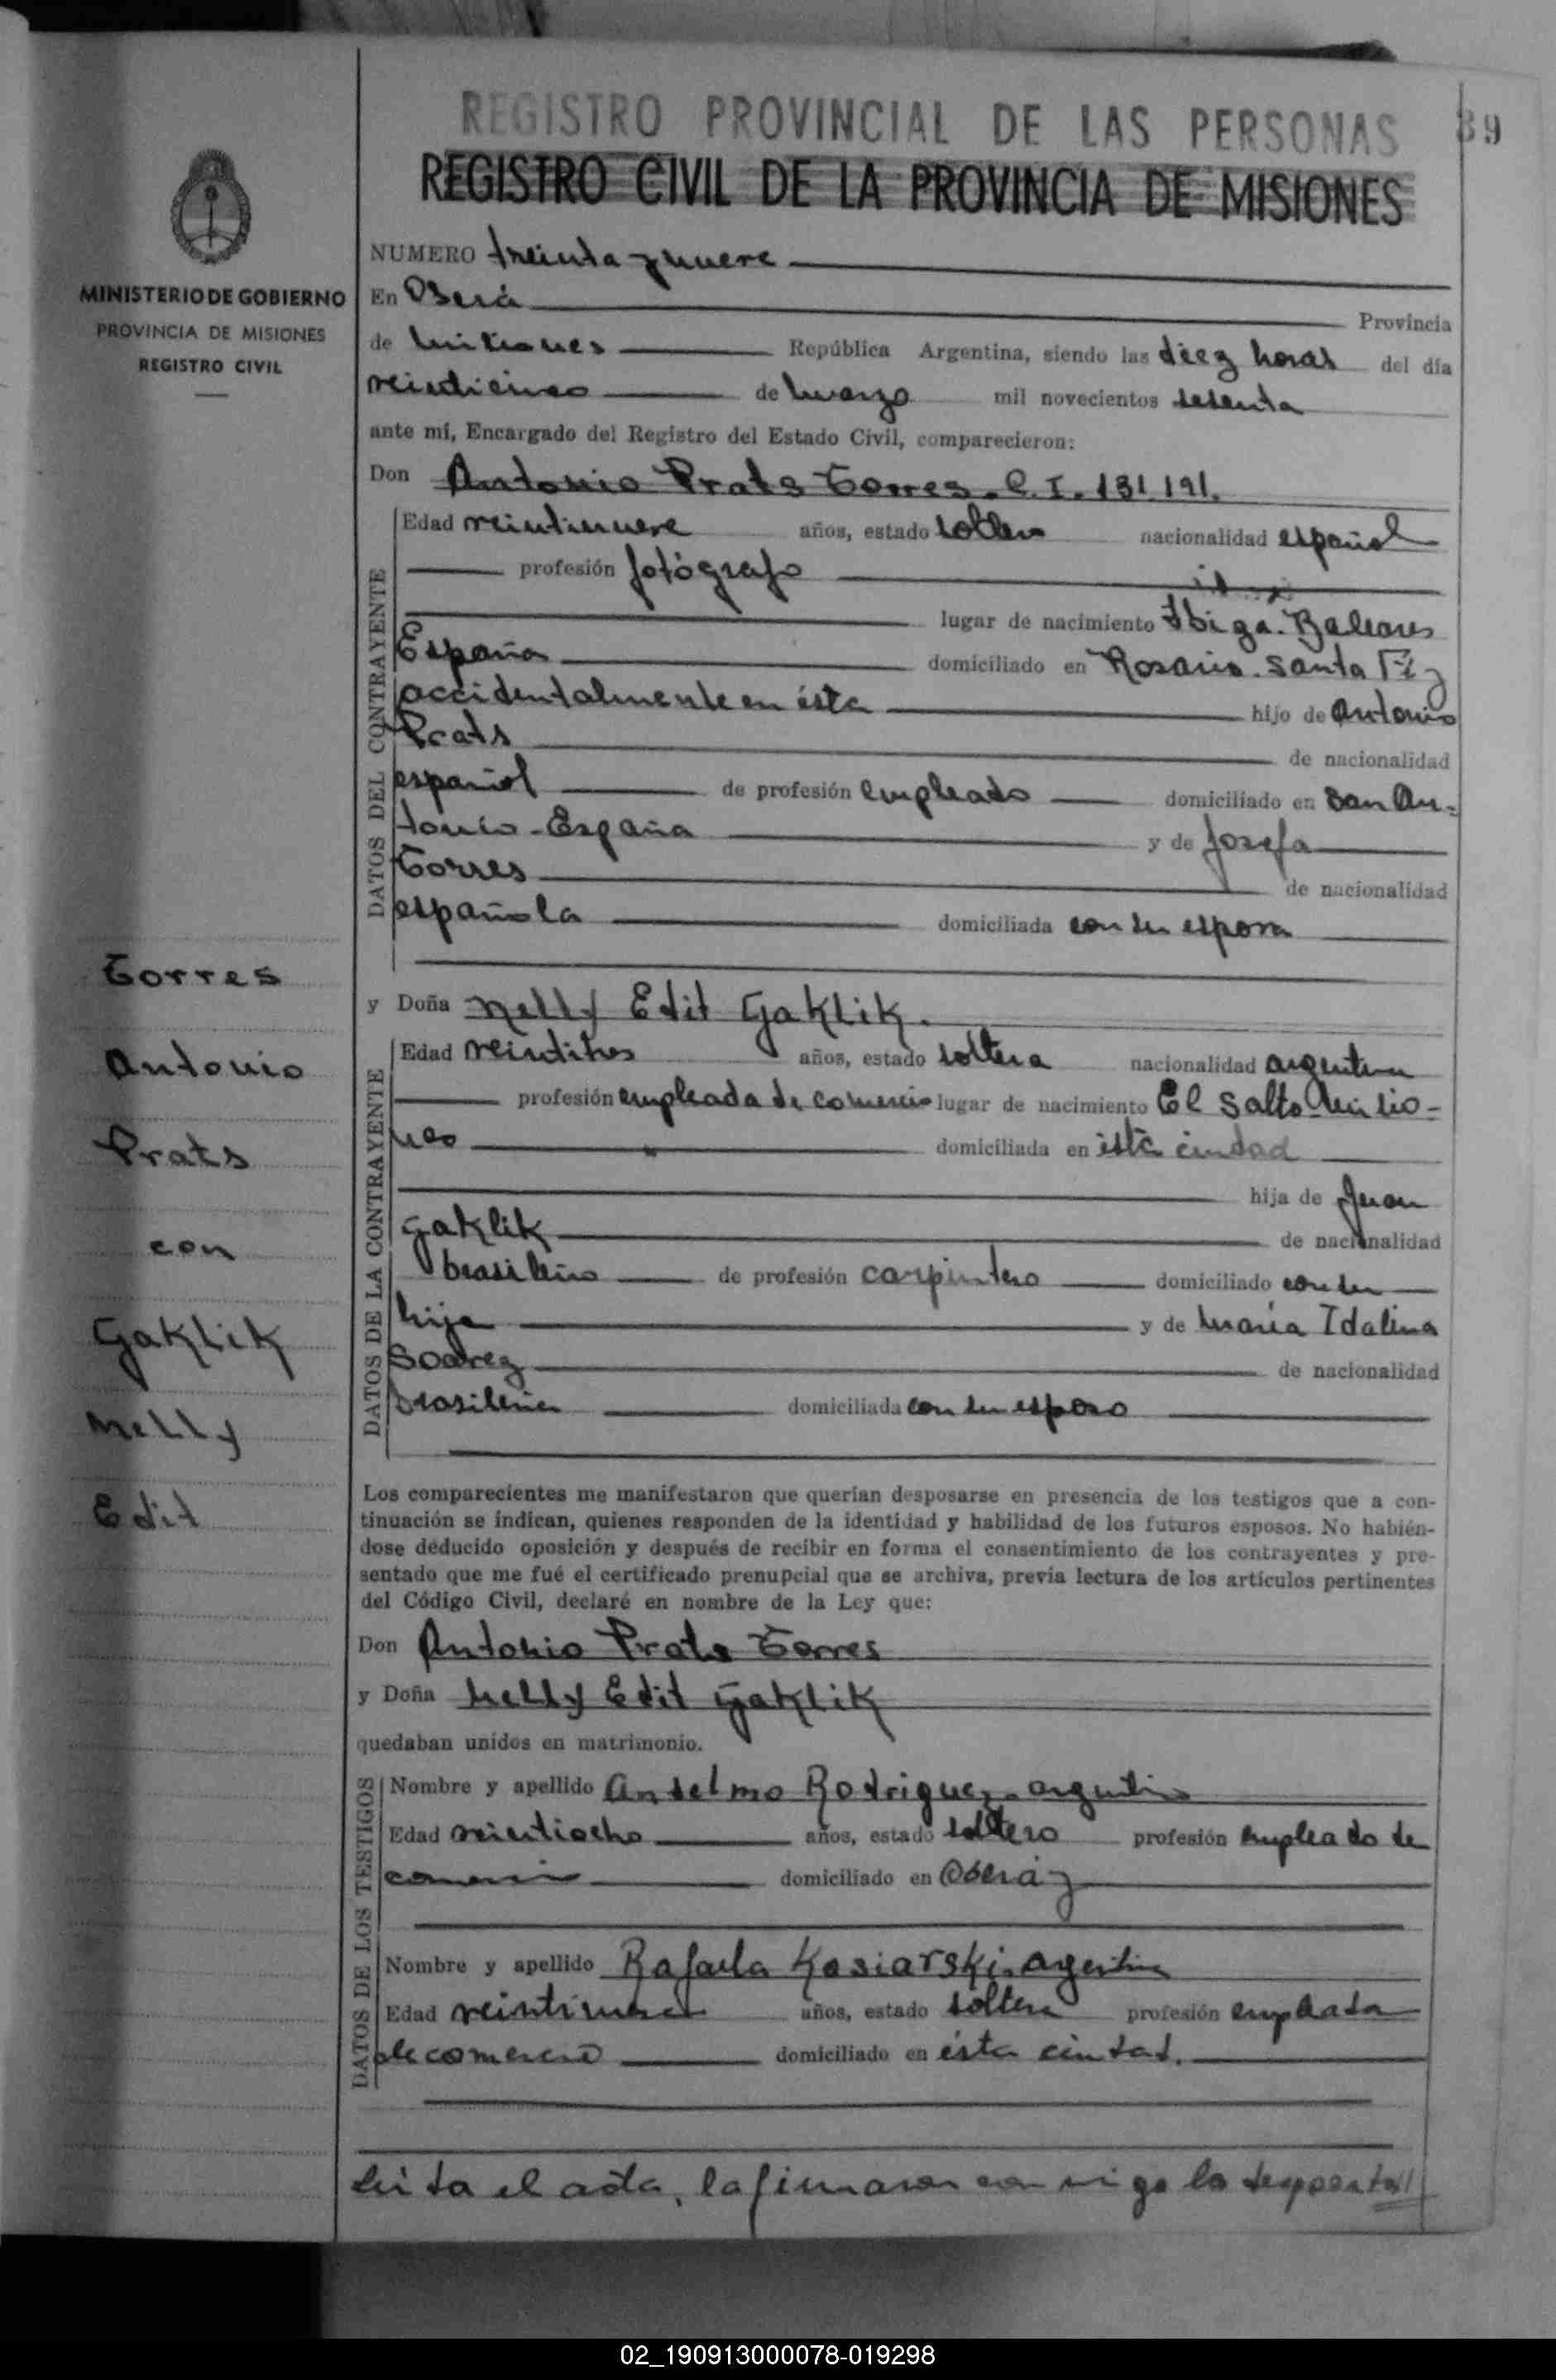 REGISTRO PROVINCIAL DE LAS PERSONAS 39
REGISTRO CIVIL DE LA PROVINCIA DE MISIONES
MINISTERIO DE GOBIERNO
PROVINCIA DE MISIONES
REGISTRO CIVIL
NUMERO treinta y nueve
En Oberá Provincia
de Misiones República Argentina, siendo las diez horas del día
veinticinco de marzo mil novecientos sesenta
ante mí, Encargado del Registro del Estado Civil, comparecieron:
Don Antonio Prats Torres. C.I. 131.191.
DATOS DEL CONTRAYENTE
Edad veintinueve años, estado soltero nacionalidad español
profesión fotógrafo
lugar de nacimiento Ibiza. Baleares
España domiciliado en Rosario. Santa Fé y
accidentalmente en ésta hijo de Antonio
Prats de nacionalidad
español de profesión empleado domiciliado en San An=
tonio - España y de Josefa
Torres de nacionalidad
española domiciliada con su esposo
y Doña Nelly Edit Gaklik.
DATOS DE LA CONTRAYENTE
Edad veintitres años, estado soltera nacionalidad argentina
profesión empleada de comercio lugar de nacimiento El Salto Misio-
nes domiciliada en ésta ciudad
hija de Juan
Gaklik de nacionalidad
brasileño de profesión carpintero domiciliado con su
hija y de María Idalina
Soarez de nacionalidad
brasileña domiciliada con su esposo
Torres
Antonio
Prats
con
Gaklik
Nelly
Edit
Los comparecientes me manifestaron que querían desposarse en presencia de los testigos que a con-
tinuación se indican, quienes responden de la identidad y habilidad de los futuros esposos. No habién-
dose deducido oposición y después de recibir en forma el consentimiento de los contrayentes y pre-
sentado que me fué el certificado prenupcial que se archiva, previa lectura de los artículos pertinentes
del Código Civil, declaré en nombre de la Ley que:
Don Antonio Prats Torres
y Doña Nelly Edit Gaklik
quedaban unidos en matrimonio.
DATOS DE LOS TESTIGOS
Nombre y apellido Anselmo Rodriguez. argentino
Edad veintiocho años, estado soltero profesión empleado de
comercio domiciliado en Oberá y
Nombre y apellido Rafaela Kosiarski. argentina
Edad veintinueve años, estado soltera profesión empleada
de comercio domiciliado en ésta ciudad.
Leida el acta, la firmaron conmigo los desposados
02_190913000078-019298